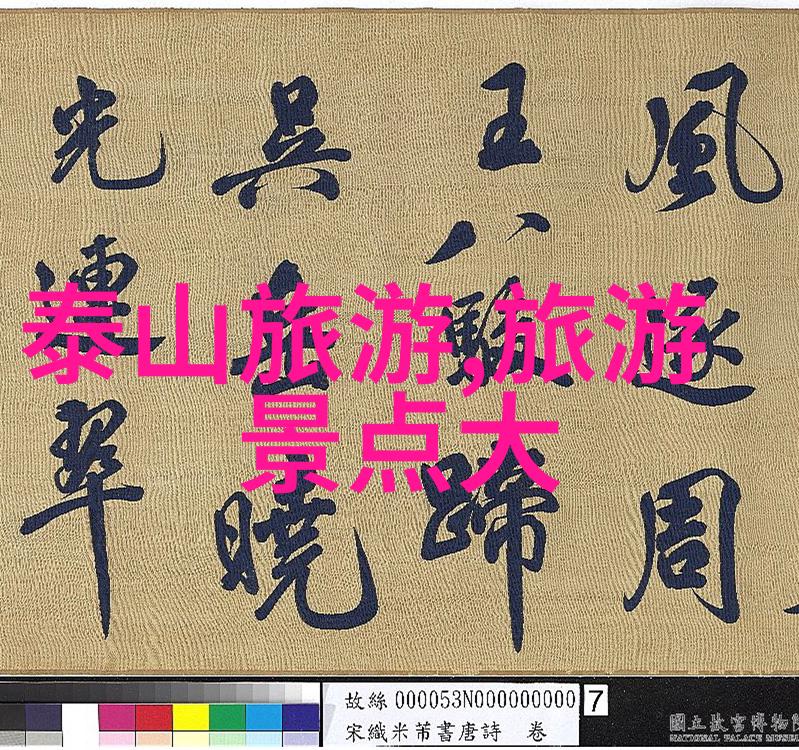 風逐周
王八駿蹄
吳岳曉
光連翠
泰山旅游,旅游
景点大
故絲 000053N000000000 7
宋織米芾書唐詩 卷
國立故宮博物院
NATIONAL PALACE